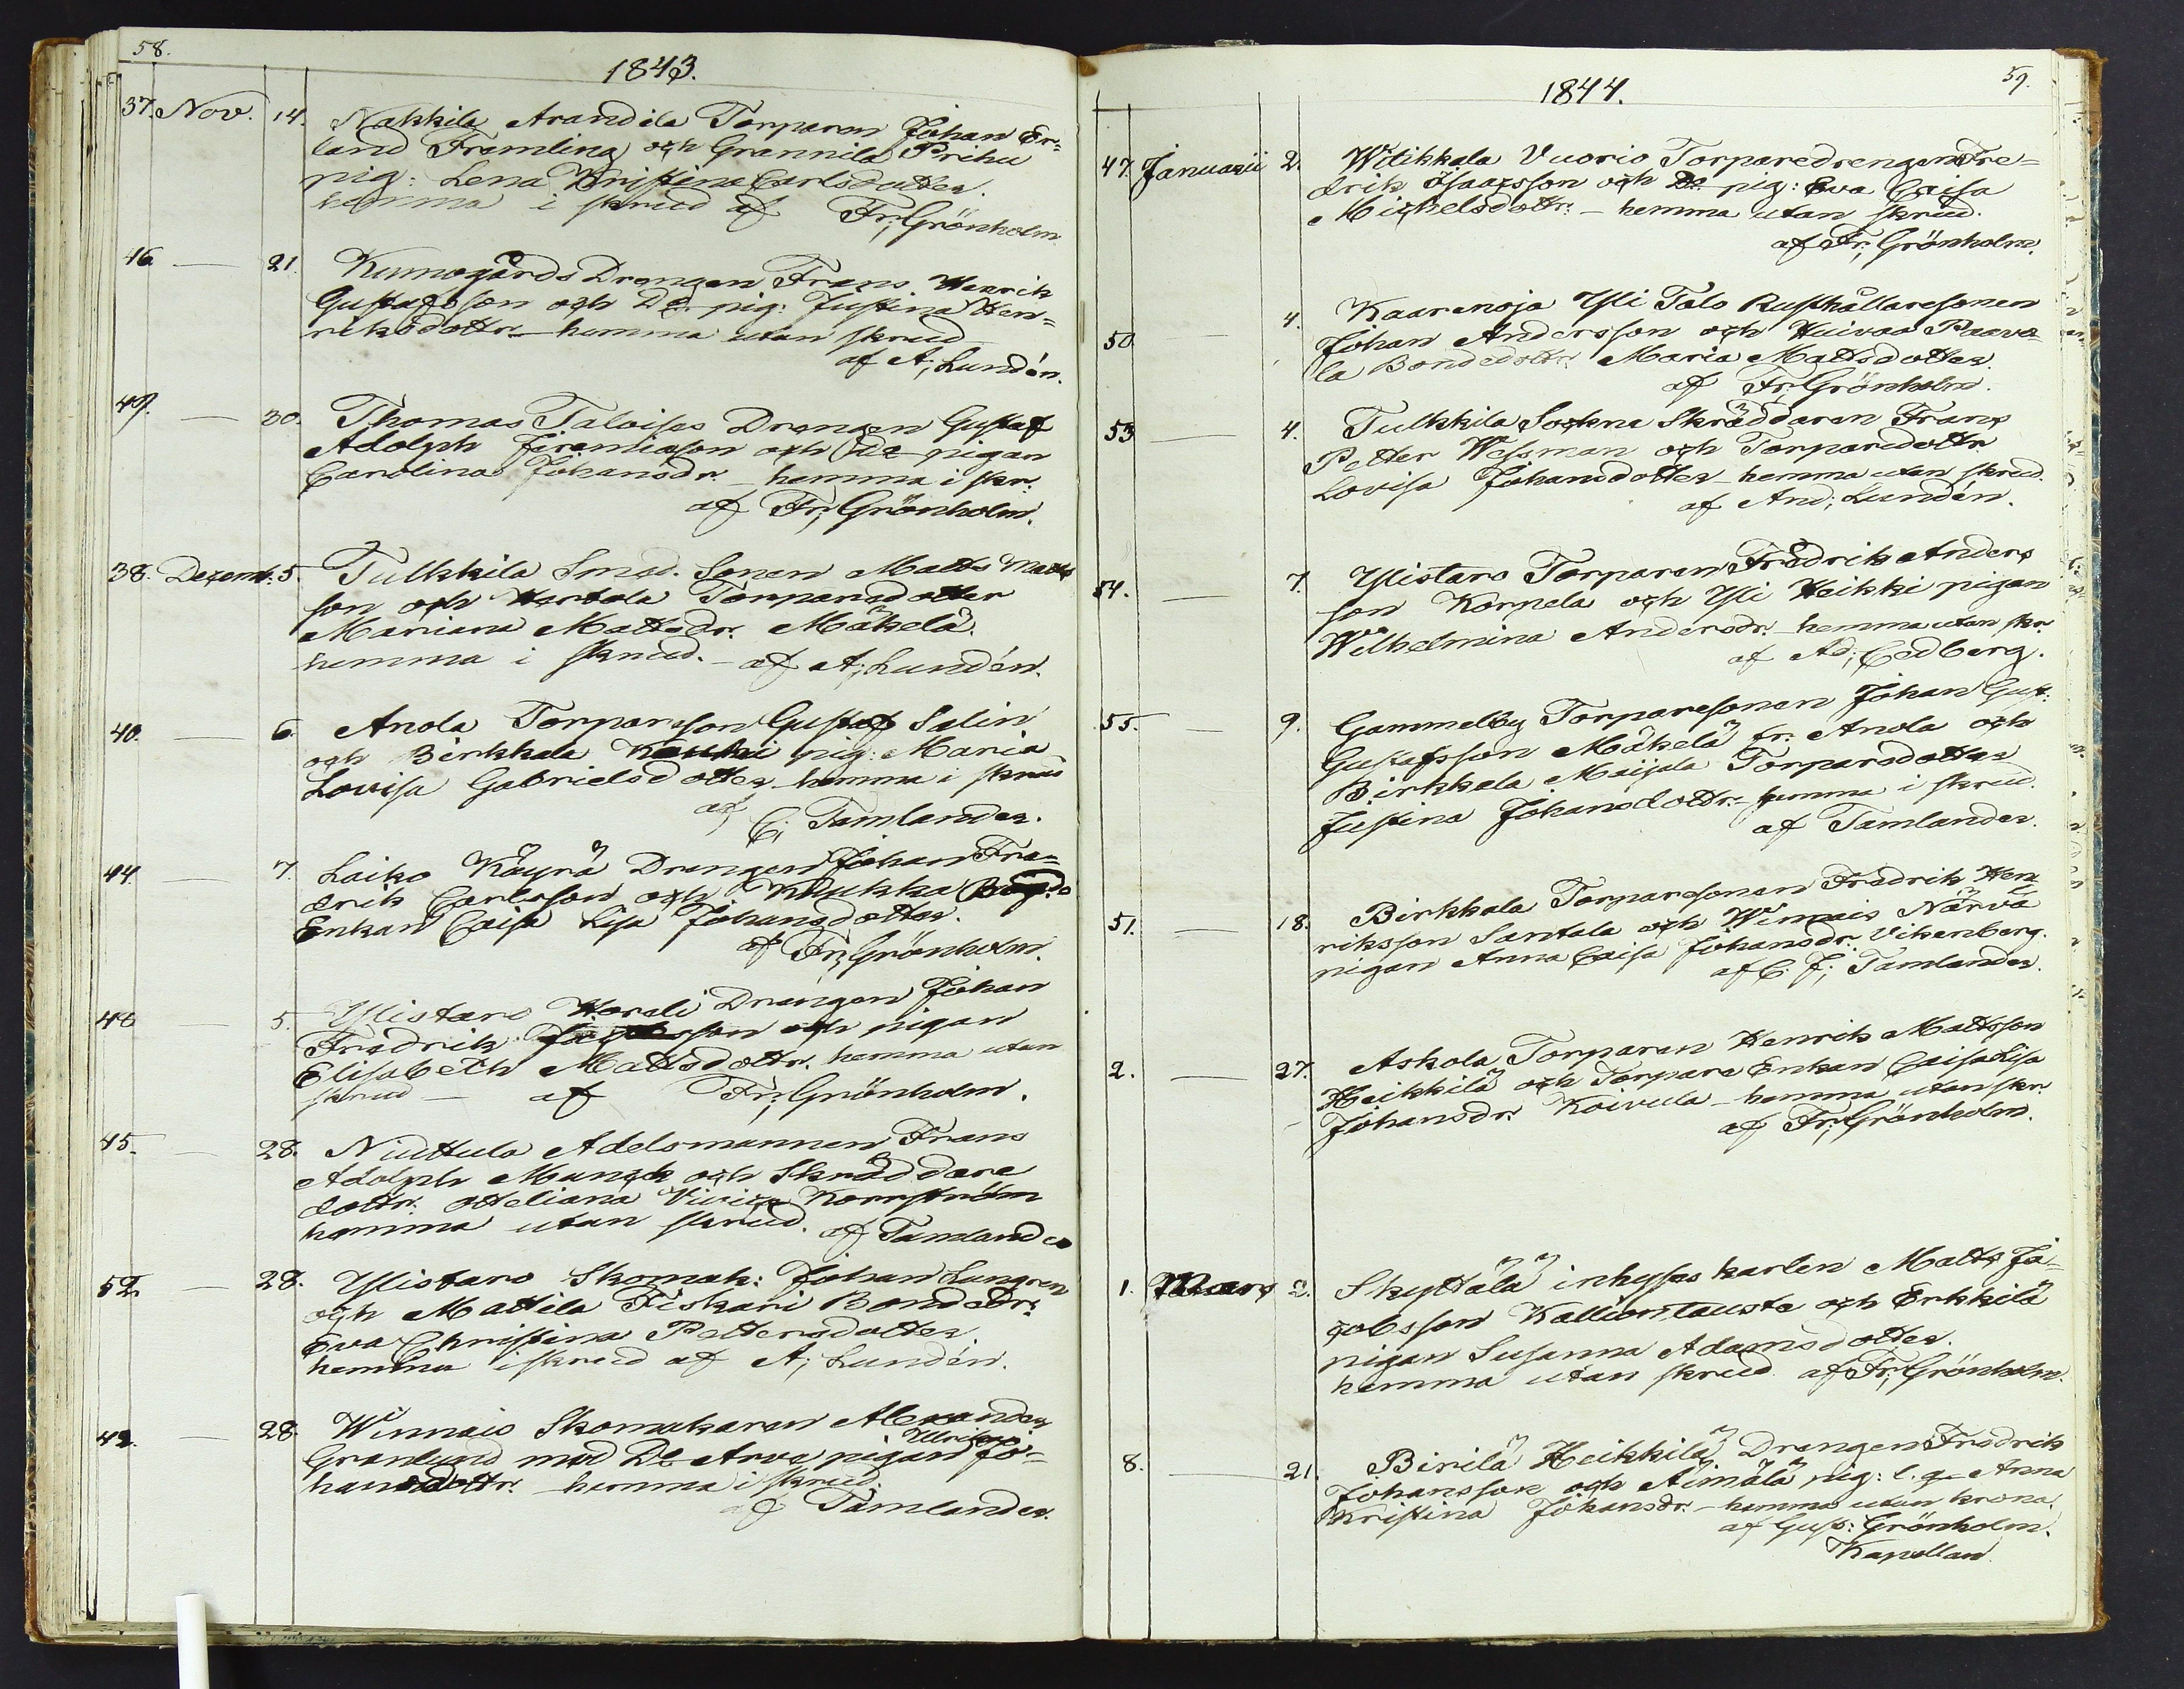 58.
1843.
37. Nov. 14. Nakkila Arandila Torparen Johan Er=
land Framling och Grannila Prihu
pig: Lena Kristina Carlsdotter.
hemma i skrud af Fr; Grönholm
46 — 21. Kumogårds Drengen Frans Henrik
Gustafsson och De pig: Justina Hen=
riksdottr. hemma utan skrud
af A; Lundén.
49. — 30. Thomas Taloisas Drengen Gustaf
Adolph Jeremiason och De pigan
Carolina Johansdr. hemma i skr:
af Fr; Grönholm.
38. Dezemb. 5. Tulkkila Smed. Sonen Matts Matts
son och Hertola Torparedotter
Mariana Mattsdr. Mäkelä.
hemma i skrud. — af A; Lundén.
40. — 6. Anola Torparesson Gustaf Salin
och Birkkala Kauki pig: Maria
Lovisa Gabrielsdotter hemma i skrud
af C; Tamlander.
44. — 7. Laiko Käyrä Drengen Johan Fre=
drik Carlsson och Klukka
Enkan Caisa Lisa Johansdotter.
af Fr; Grönholm.
48 — 5. Ylistaro Horeli Drengen Johan
Fredrik och pigan
Elisabeth Mattsdottr. hemma utan
skrud — af Fr; Grönholm.
45. — 28. Niuttula Adelsmannen Frans
Adolph Munck och Skräddare
dottr. Otteliana Korrström
hemma utan skrud. af Tamlander
52. — 28. Ylistaro Skomak: Johan Lungren
och Mattila Fiskari Bondedr:
Eva Christina Pettersdotter.
hemma i skrud af A; Lundén.
42. — 28. Winnais Skomakaren Alexander
Ulrika
Granlund med De Arva pigan Jo=
hansdottr. hemma i skrud
af Tamlander.
59.
1844.
47. Januarii 2. Witikkala Vuorio Torparedrengen Fre=
drik Isaacsson och De pig: Eva Caisa
Michelsdottr: — hemma utan skrud.
af Fr; Grönholm.
50 — 4. Kaarenoja Yli Talo Rusthållaresonen
Johan Andersson och Huivaa Paavo
la Bondedottr. Maria Mattsdotter.
af Fr; Grönholm.
53 — 4. Tulkkila Sockne Skräddaren Frans
Petter Wessman och Torparedottr.
Lovisa Johansdotter hemma utan skrud.
af And; Lundén.
54. — 7. Ylistaro Torparen Fredrik Anders
son Korpela och Yli Heikki pigan
Wilhelmina Andersdr. hemma utan skr.
af Ad; Cedberg.
55. — 9. Gammelby Torparesonen Johan Gust:
Gustafsson Mäkelä fr: Anola och
Birkkala Maijala Torparedotter
Justina Johansdottr. — hemma i skrud.
af Tamlander.
51. — 18. Birkkala Torparesonen Fredrik Hen
riksson Santala och Winnais Närvä
pigan Anna Caisa Johansdr. Vikenberg.
af C. J; Tamlander.
2. — 27. Askola Torparen Henrik Mattsson
Heikkilä och Torpare Enkan Caisa Lisa
Johansdr. Koivula — hemma utan skr.
af Fr; Grönholm.
1. Mars 2. Skyttälä inhyses karlen Matts Ja=
cobsson Kalliontausta och Erkkilä
pigan Susanna Adamsdotter.
hemma utan skrud. af Fr; Grönholm.
8. — 21. Birilä Heikkilä Drengen Fredrik
Johansson och Äimälä pig: l. q. Anna
Kristina Johansdr. — hemma utan krona.
af Gust: Grönholm.
Kapellan.